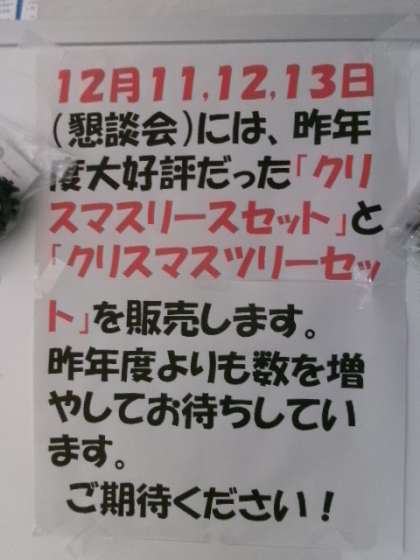 12月11,12,13日
(懇談会)には、昨年
度大好評だった「クリ
スマスリースセット」と
「クリスマスツリーセッ
ト」を販売します。
昨年度よりも数を増
やしてお待ちしてい
ます。
ご期待ください!